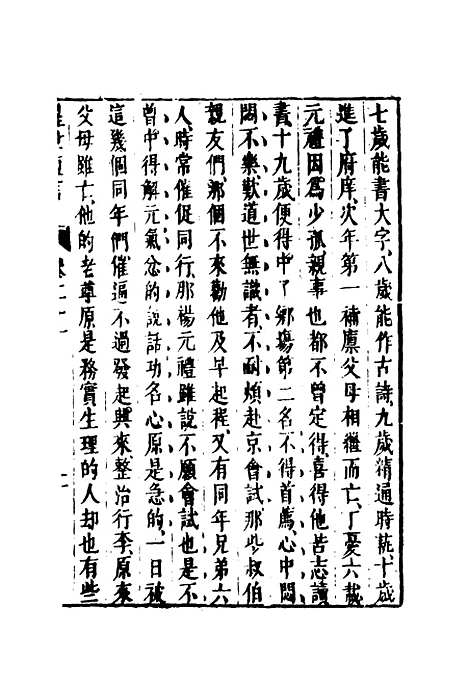 七歲能書大字八歲能作古詩九歲精通時藝十歲
進了府庠次年第一補廪父母相繼而亡丁憂六載
元禮因爲少孤親事也都不曾定得喜得他苦志讀
書十九歲便得中了鄉場第二名不得首薦心中悶
悶不樂歎道世無識者不耐煩赴京會試那些叔伯
親友們那個不來勸他及早起程又有同年兄弟六
人時常催促同行那楊元禮雖説不願會試也是不
曾中得解元氣忿的説話功名心原是急的一日被
這幾個同年們催逼不過發起興來整治行李原來
父母雖亡他的老尊原是務實生理的人却也有些
卷二十一